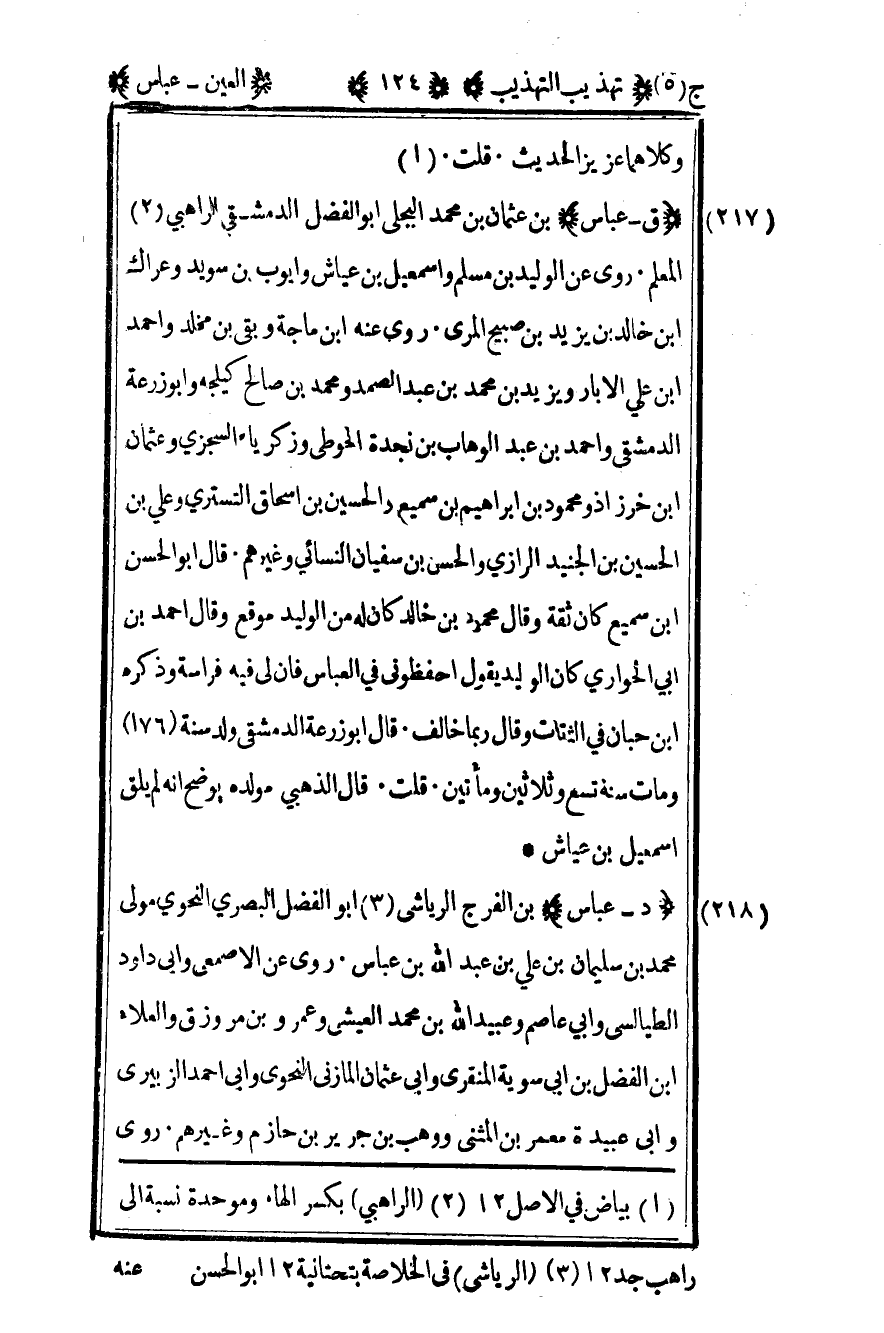 ج (٥) ﴿ تهذيب التهذيب ﴾ ﴿ ١٢٤ ﴾ ﴿ العين ـ عباس ﴾
وكلاهما عزيز الحديث ٠ قلت ٠ (١)
(٢١٧) ﴿ ق ـ عباس ﴾ بن عثمان بن محمد البجلي ابو الفضل الدمشقي الراهبي (٢)
المعلم ٠ روى عن الوليد بن مسلم واسمعيل بن عياش وايوب بن سويد وعراك
ابن خالد بن يزيد بن صبيح المري ٠ روى عنه ابن ماجة وبقي بن مخلد واحمد
ابن علي الابار ويزيد بن محمد بن عبد الصمد ومحمد بن صالح كيلجه وابو زرعة
الدمشقي واحمد بن عبد الوهاب بن نجدة الحوطي وزكرياء السجزي وعثمان
ابن خرزاذ ومحمود بن ابراهيم بن سميع والحسين بن اسحاق التستري وعلي بن
الحسين بن الجنيد الرازي والحسن بن سفيان النسائي وغيرهم ٠ قال ابو الحسن
ابن سميع كان ثقة وقال محمود بن خالد كان له من الوليد موقع وقال احمد بن
ابي الحواري كان الوليد يقول احفظوني في العباس فان لي فيه فراسة وذكره
ابن حبان في الثقات وقال ربما خالف ٠ قال ابو زرعة الدمشقي ولد سنة (١٧٦)
ومات سنة تسع وثلاثين ومأتين ٠ قلت ٠ قال الذهبي مولده يوضح انه لم يلق
اسمعيل بن عياش •
(٢١٨) ﴿ د ـ عباس ﴾ بن الفرج الرياشي (٣) ابو الفضل البصري النحوي مولى
محمد بن سليمان بن علي بن عبد الله بن عباس ٠ روى عن الاصمعي وابي داود
الطيالسي وابي عاصم وعبيد الله بن محمد العيشي وعمرو بن مرزوق والعلاء
ابن الفضل بن ابي سوية المنقري وابي عثمان المازني النحوي وابي احمد الزبيري
وابي عبيدة معمر بن المثنى ووهب بن جرير بن حازم وغيرهم ٠ روى
(١) بياض في الاصل ١٢ (٢) (الراهبي) بكسر الهاء وموحدة نسبة الى
راهب جد ١٢ (٣) (الرياشي) في الخلاصة بتحتانية ١٢ ابو الحسن عنه